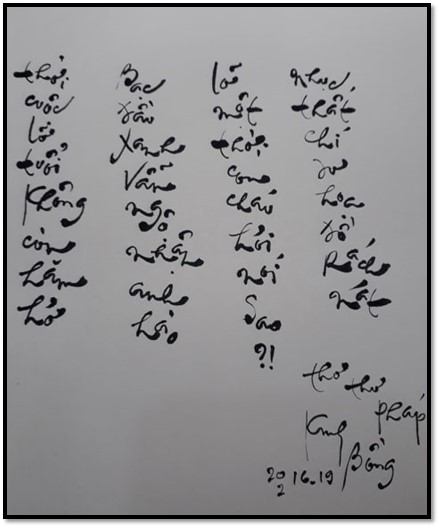 thời cuộc lỡ tuổi không còn hăm hở
Bạc đầu Xanh Vẫn ngộ nhận anh hào
lỡ một thời con cháu hỏi nói Sao ?!
nhục thất chí hoa Rách nát
thơ thư pháp
Bồng
20 16.19
2